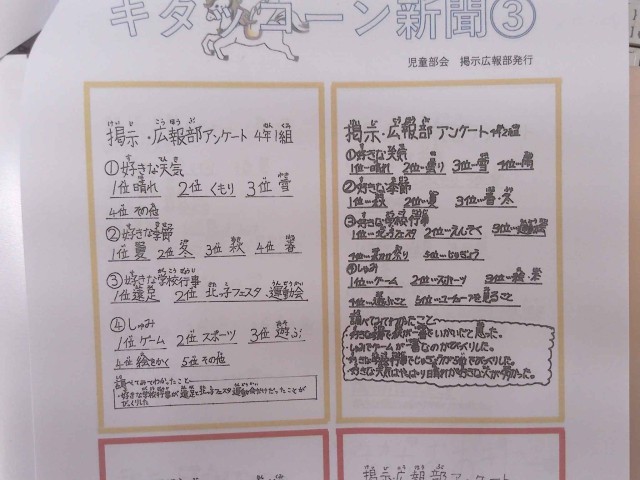 キタッコーン新聞③
児童部会 掲示広報部発行
掲示・広報部アンケート 4年1組
①好きな天気
1位 晴れ 2位 くもり 3位 雪
4位 その他
②好きな季節
1位 夏 2位 冬 3位 秋 4位 春
③好きな学校行事
1位 遠足 2位 北っ子フェスタ、運動会
④しゅみ
1位 ゲーム 2位 スポーツ 3位 遊ぶ
4位 絵をかく 5位 その他
調べてみてわかったこと
・好きな学校行事が遠足と北っ子フェスタ運動会だけだったことが
びっくりした
掲示・広報部アンケート4年2組
①好きな天気
1位…晴れ 2位…曇り 3位…雪 4位…雨
②好きな季節
1位…秋 2位…夏 3位…春・冬
③好きな学校行事
1位…北っ子フェスタ 2位…えんそく 3位…運動会
5位…じゅぎょう
④しゅみ
1位…ゲーム 2位…スポーツ
5位…ユーチューブを見ること
調べてみてわかったこと
・好きな季節で秋が一番でいがいだと思った。
・しゅみでゲームが一番なのがびっくりした。
・好きな学校行事でじゅぎょうが5位でびっくりした。
・好きな天気はやっぱり晴れが好きな人が多かった。
掲示・広報部アンケート